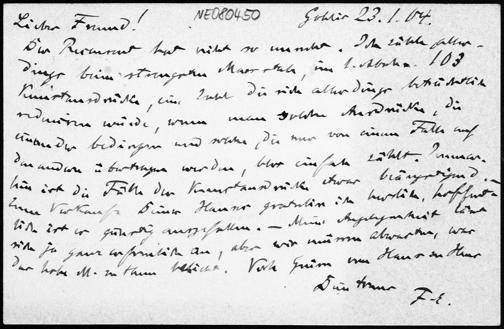 NE080450
Gohlis 23.1.04.
Lieber Freund!
Der Rezensent hat nicht so unrecht. Ich zähle aller-
dings beim strengsten Maasstabe, im 1. Abschn. 103
Kunstausdrücke, eine Zahl die sich allerdings beträchtlich
reduzieren würde, wenn man solche Ausdrücke, die
einander bedingen und solche, die nur von einem Falle auf
den andern übertragen werden, blos einfach zählt. Immer-
hin ist die Fülle der Kunstausdrücke etwas beängstigend. —
Zum Verkaufe Deines Hauses gratulire ich herzlich, hoffent-
lich ist er günstig ausgefallen. — Meine Angelegenheit lässt
sich ja ganz erfreulich an, aber wir müssen abwarten, was
das hohe M. zu thun beliebt. Viele Grüsse von Haus zu Haus
Dein treuer
F-E.